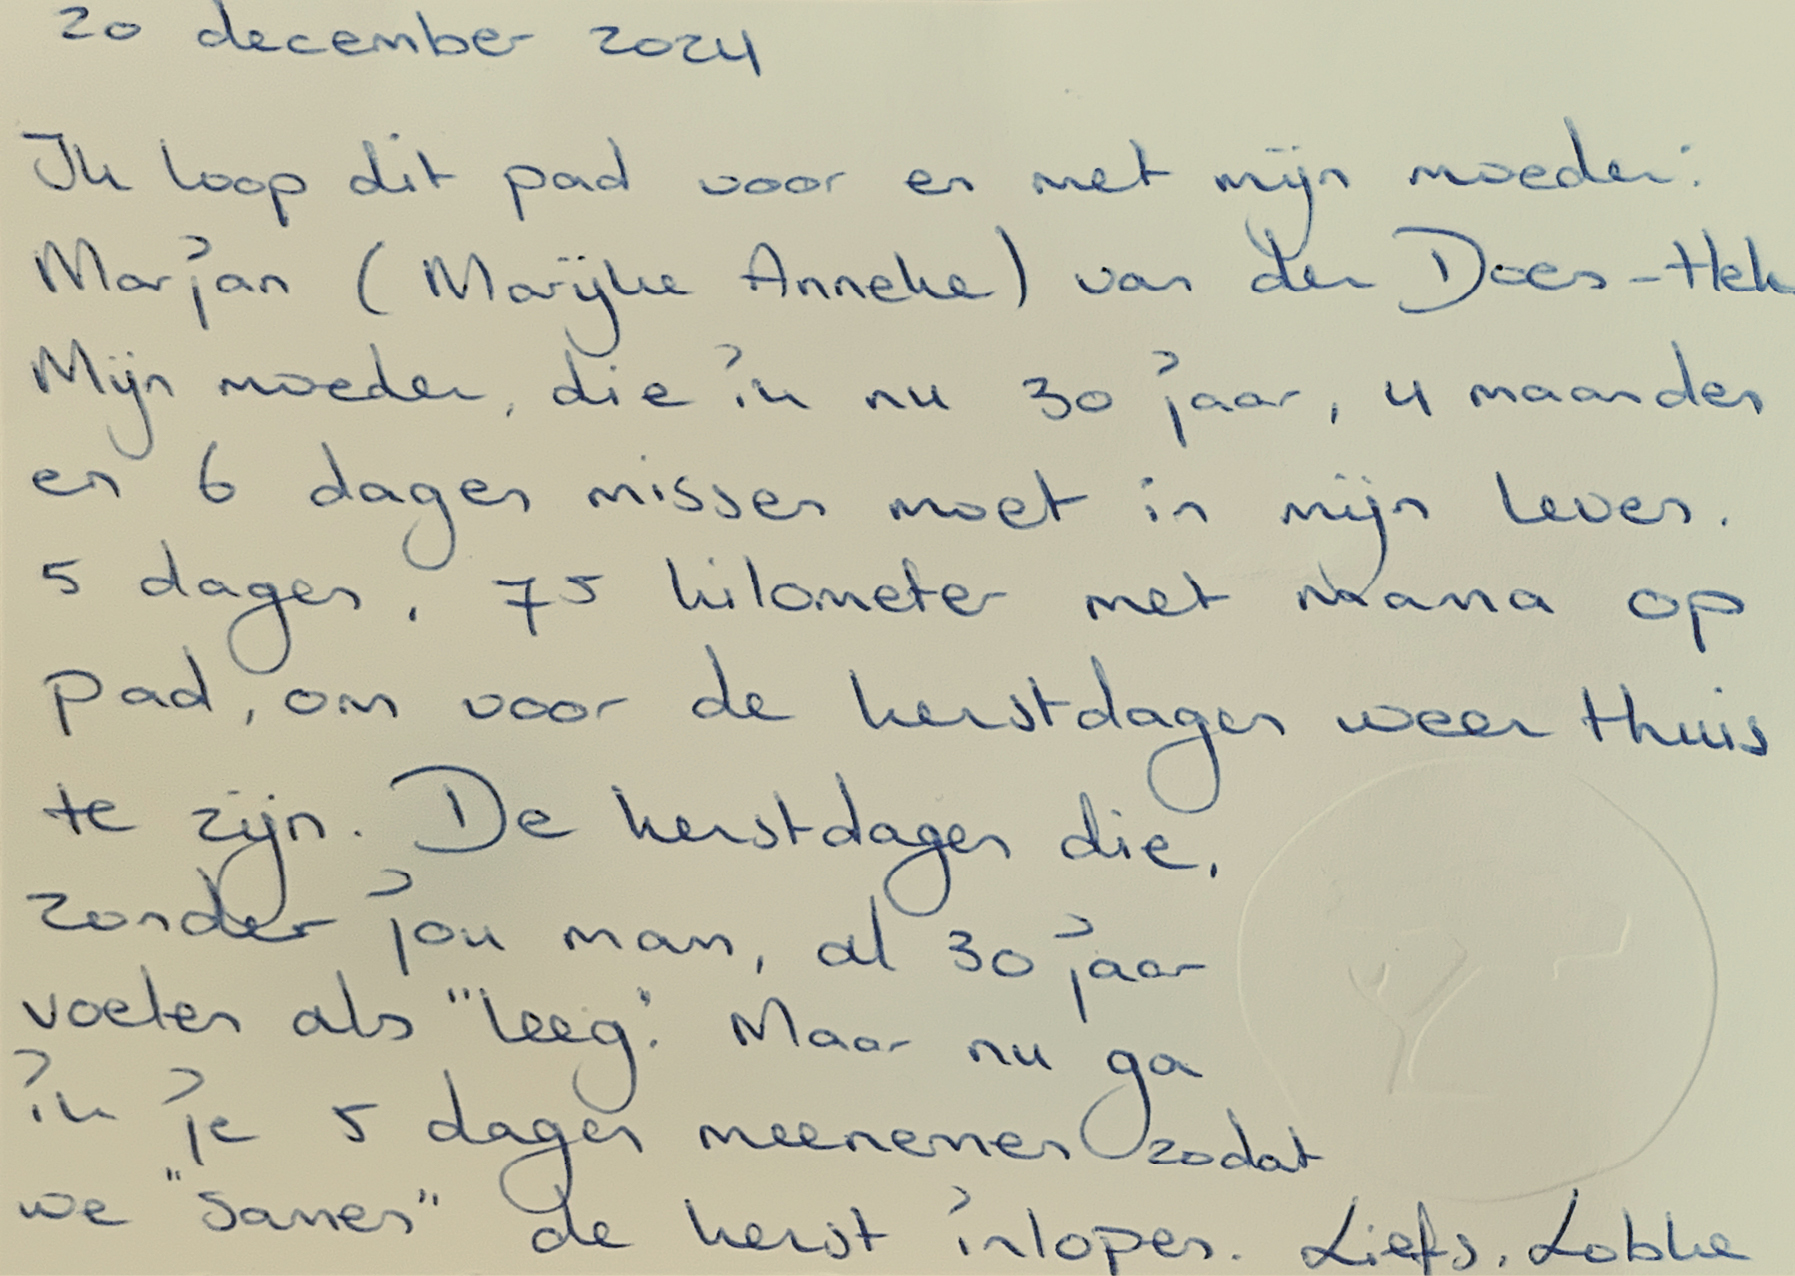 20 december 2024
Ik loop dit pad voor en met mijn moeder:
Marjan (Marijke Anneke) van der Does-Hek
Mijn moeder, die ik nu 30 jaar, 4 maanden
en 6 dagen missen moet in mijn leven.
5 dagen, 75 kilometer met mama op
pad, om voor de kerstdagen weer thuis
te zijn. De kerstdagen die,
zonder jou mam, al 30 jaar
voelen als "leeg". Maar nu ga
ik je 5 dagen meenemen zodat
we "samen" de kerst inlopen. Liefs, Lobke